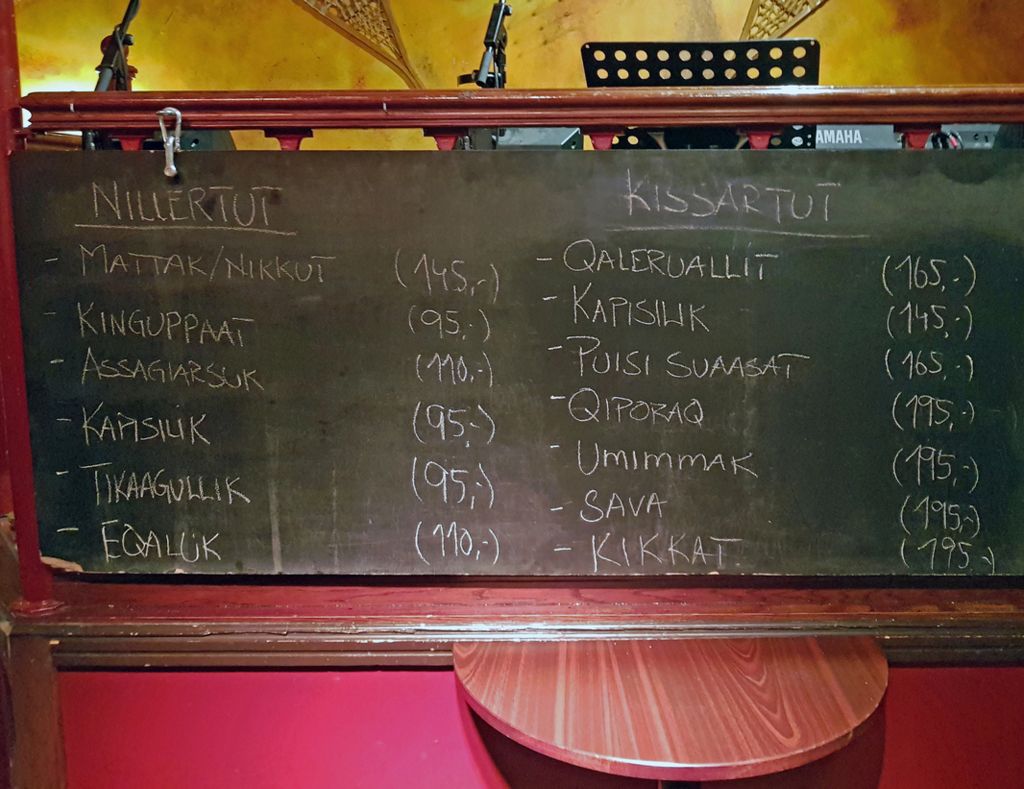 AMAHA
NILLERTUT
- MATTAK/NIKKUT (145,-)
- KINGUPPAAT (95,-)
- ASSAGIARSUK (110,-)
- KAPISILIK (95,-)
- TIKAAGULLIK (95,-)
- EQALUK (110,-)
KISSARTUT
- QALERUALLIT (165,-)
- KAPISILIK (145,-)
- PUISI SUAASAT (165,-)
- QIPORAQ (195,-)
- UMIMMAK (195,-)
- SAVA (195,-)
- KIKKAT (195,-)